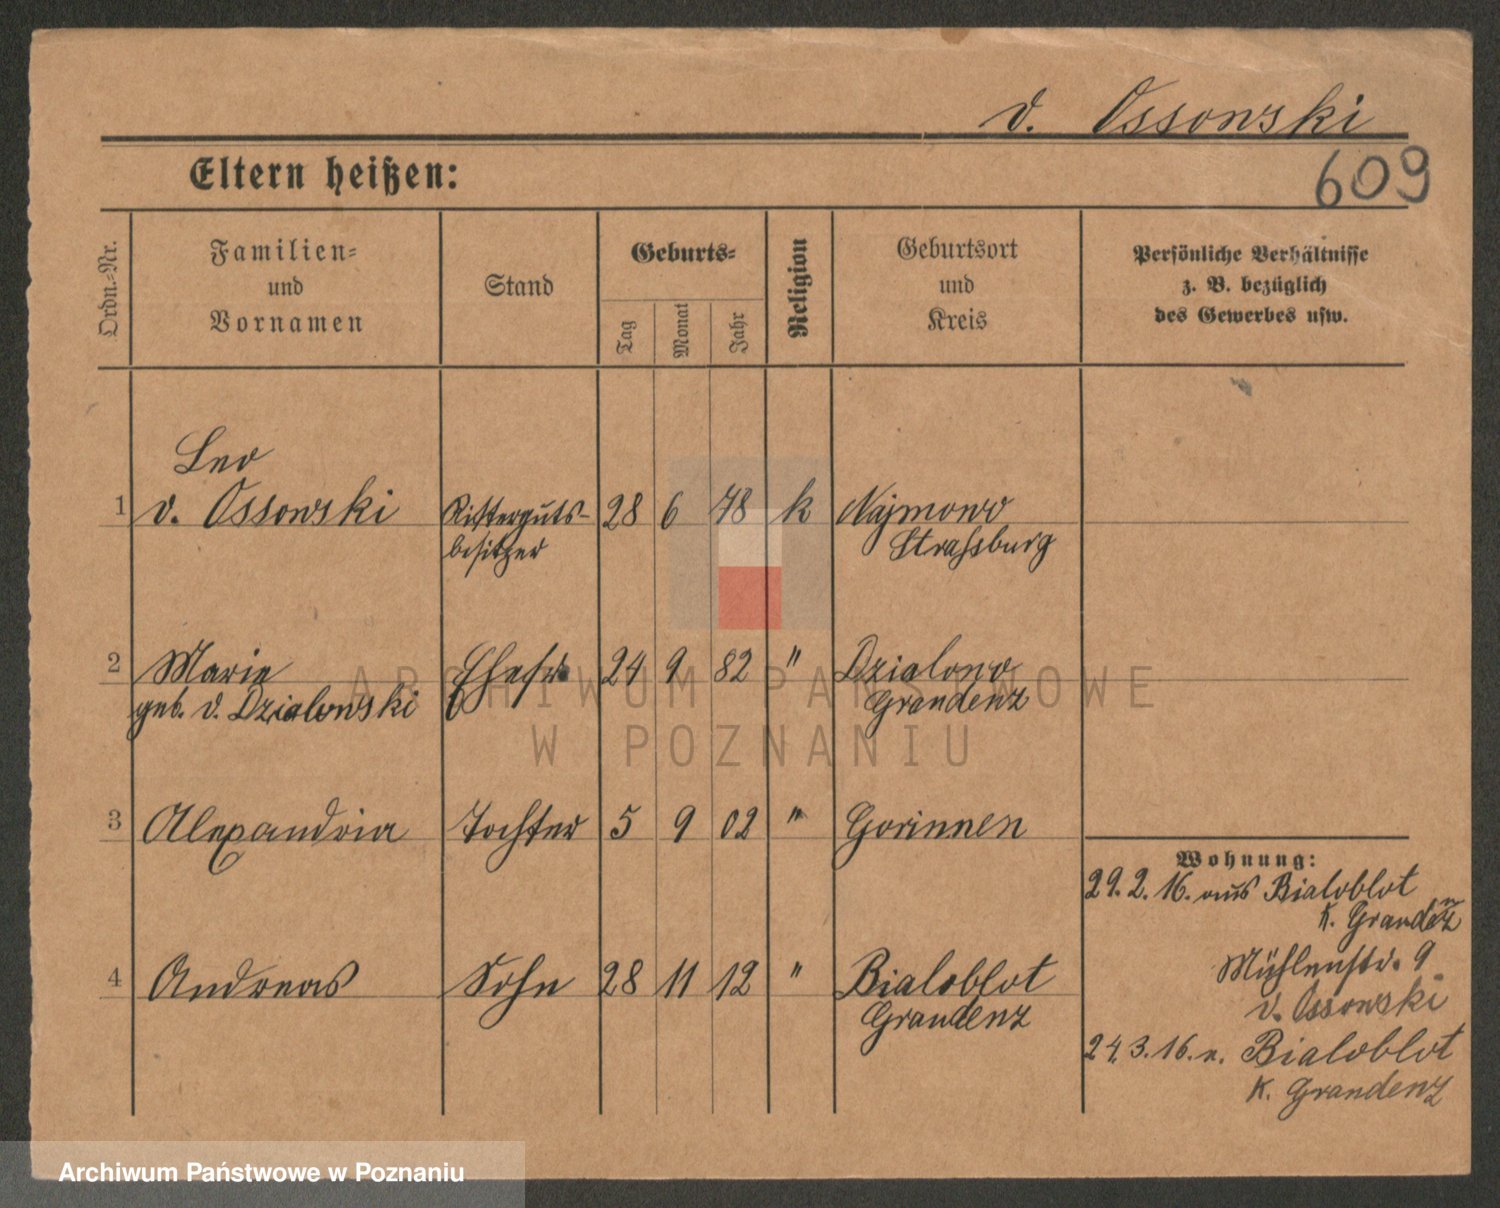 v. Ossowski
609
Eltern heißen:
Ordn.-Nr.
Familien-
und
Vornamen
Stand
Geburts-
Tag
Monat
Jahr
Religion
Geburtsort
und
Kreis
Persönliche Verhältnisse
z. B. bezüglich
des Gewerbes usw.
Leo
1 v. Ossowski Ritterguts- 28 6 78 k Najmowo
besitzer Strassburg
2 Marie Ehefr 24 9 82 " Dzialowo
geb. v. Dzialowski Graudenz
3 Alexandria Tochter 5 9 02 " Gorinnen
4 Andreas Sohn 28 11 12 " Bialoblot
Graudenz
Wohnung:
29.2.16. aus Bialoblot
K. Graudenz
Mühlenstr. 9
v. Ossowski
24.3.16. n. Bialoblot
K. Graudenz
ARCHIWUM PAŃSTWOWE
W POZNANIU
Archiwum Państwowe w Poznaniu